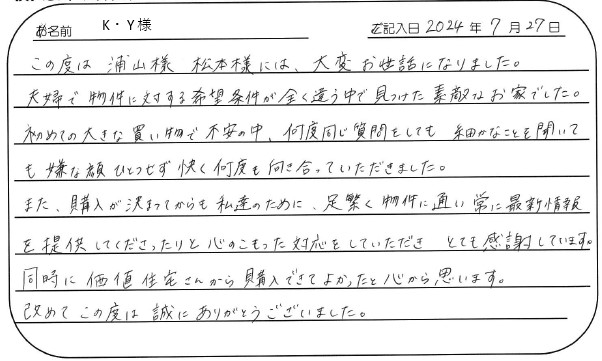 お名前 K・Y様 ご記入日 2024年7月27日
この度は 浦山様 松本様には、大変お世話になりました。
夫婦で物件に対する希望条件が全く違う中で見つけた素敵なお家でした。
初めての大きな買い物で不安の中、何度同じ質問をしても 細かなことを聞いて
も嫌な顔ひとつせず快く何度も向き合っていただきました。
また、購入が決まってからも私達のために、足繁く物件に通い常に最新情報
を提供してくださったりと心のこもった対応をしていただき とても感謝しています。
同時に価値住宅さんから購入できてよかったと心から思います。
改めてこの度は誠にありがとうございました。